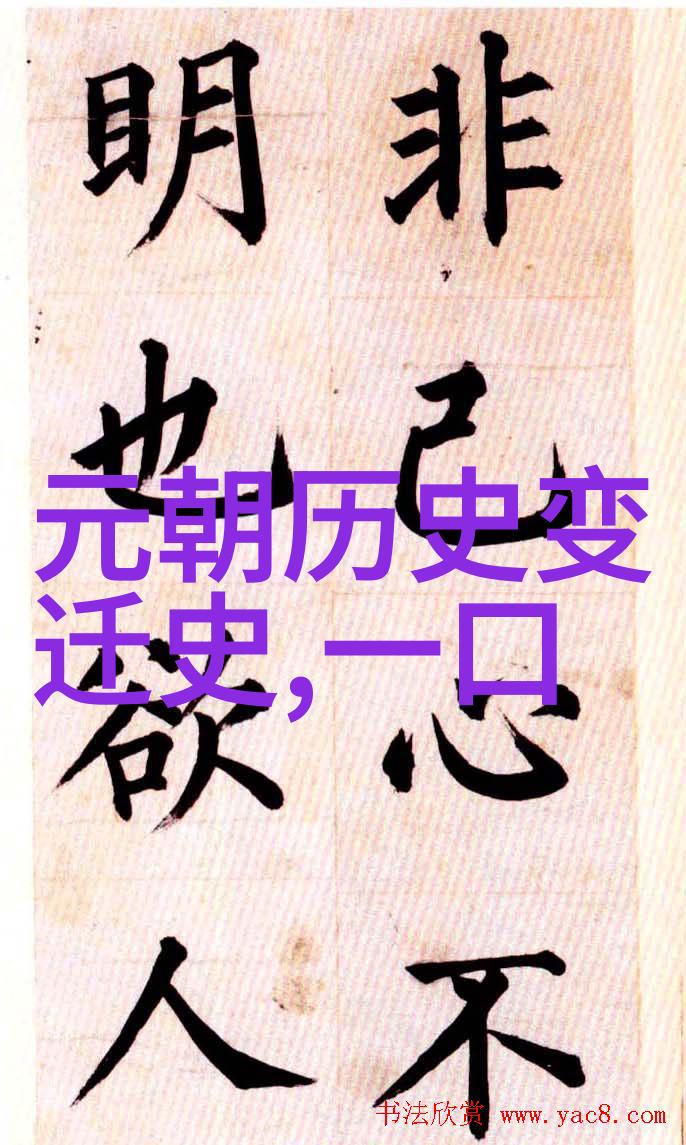 非己心不
明也欲人
元朝历史变
迁史,一口
书法欣赏 www.yac8.com